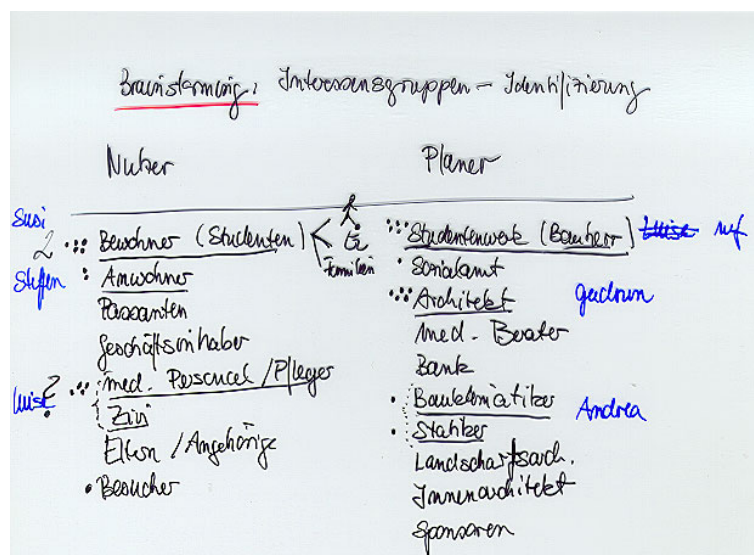 Brainstorming: Interessensgruppen – Identifizierung
Nutzer
Susi
2 Bewohner (Studenten) <
Familien
Steffen Anwohner
Passanten
Geschäftsinhaber
Luise? med. Personal / Pfleger
Zivi
Eltern / Angehörige
Besucher
Planer
Studentenwerk (Bauherr) Luise
Sozialamt
Architekt Gudrun
med. Berater
Bank
Bauklimatiker Andrea
Statiker
Landschaftsarch.
Innenarchitekt
Sponsoren